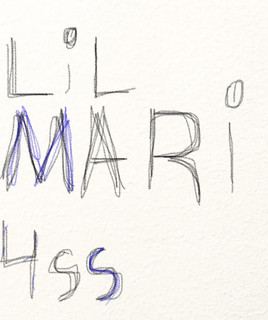 LiL
MARi
4ss